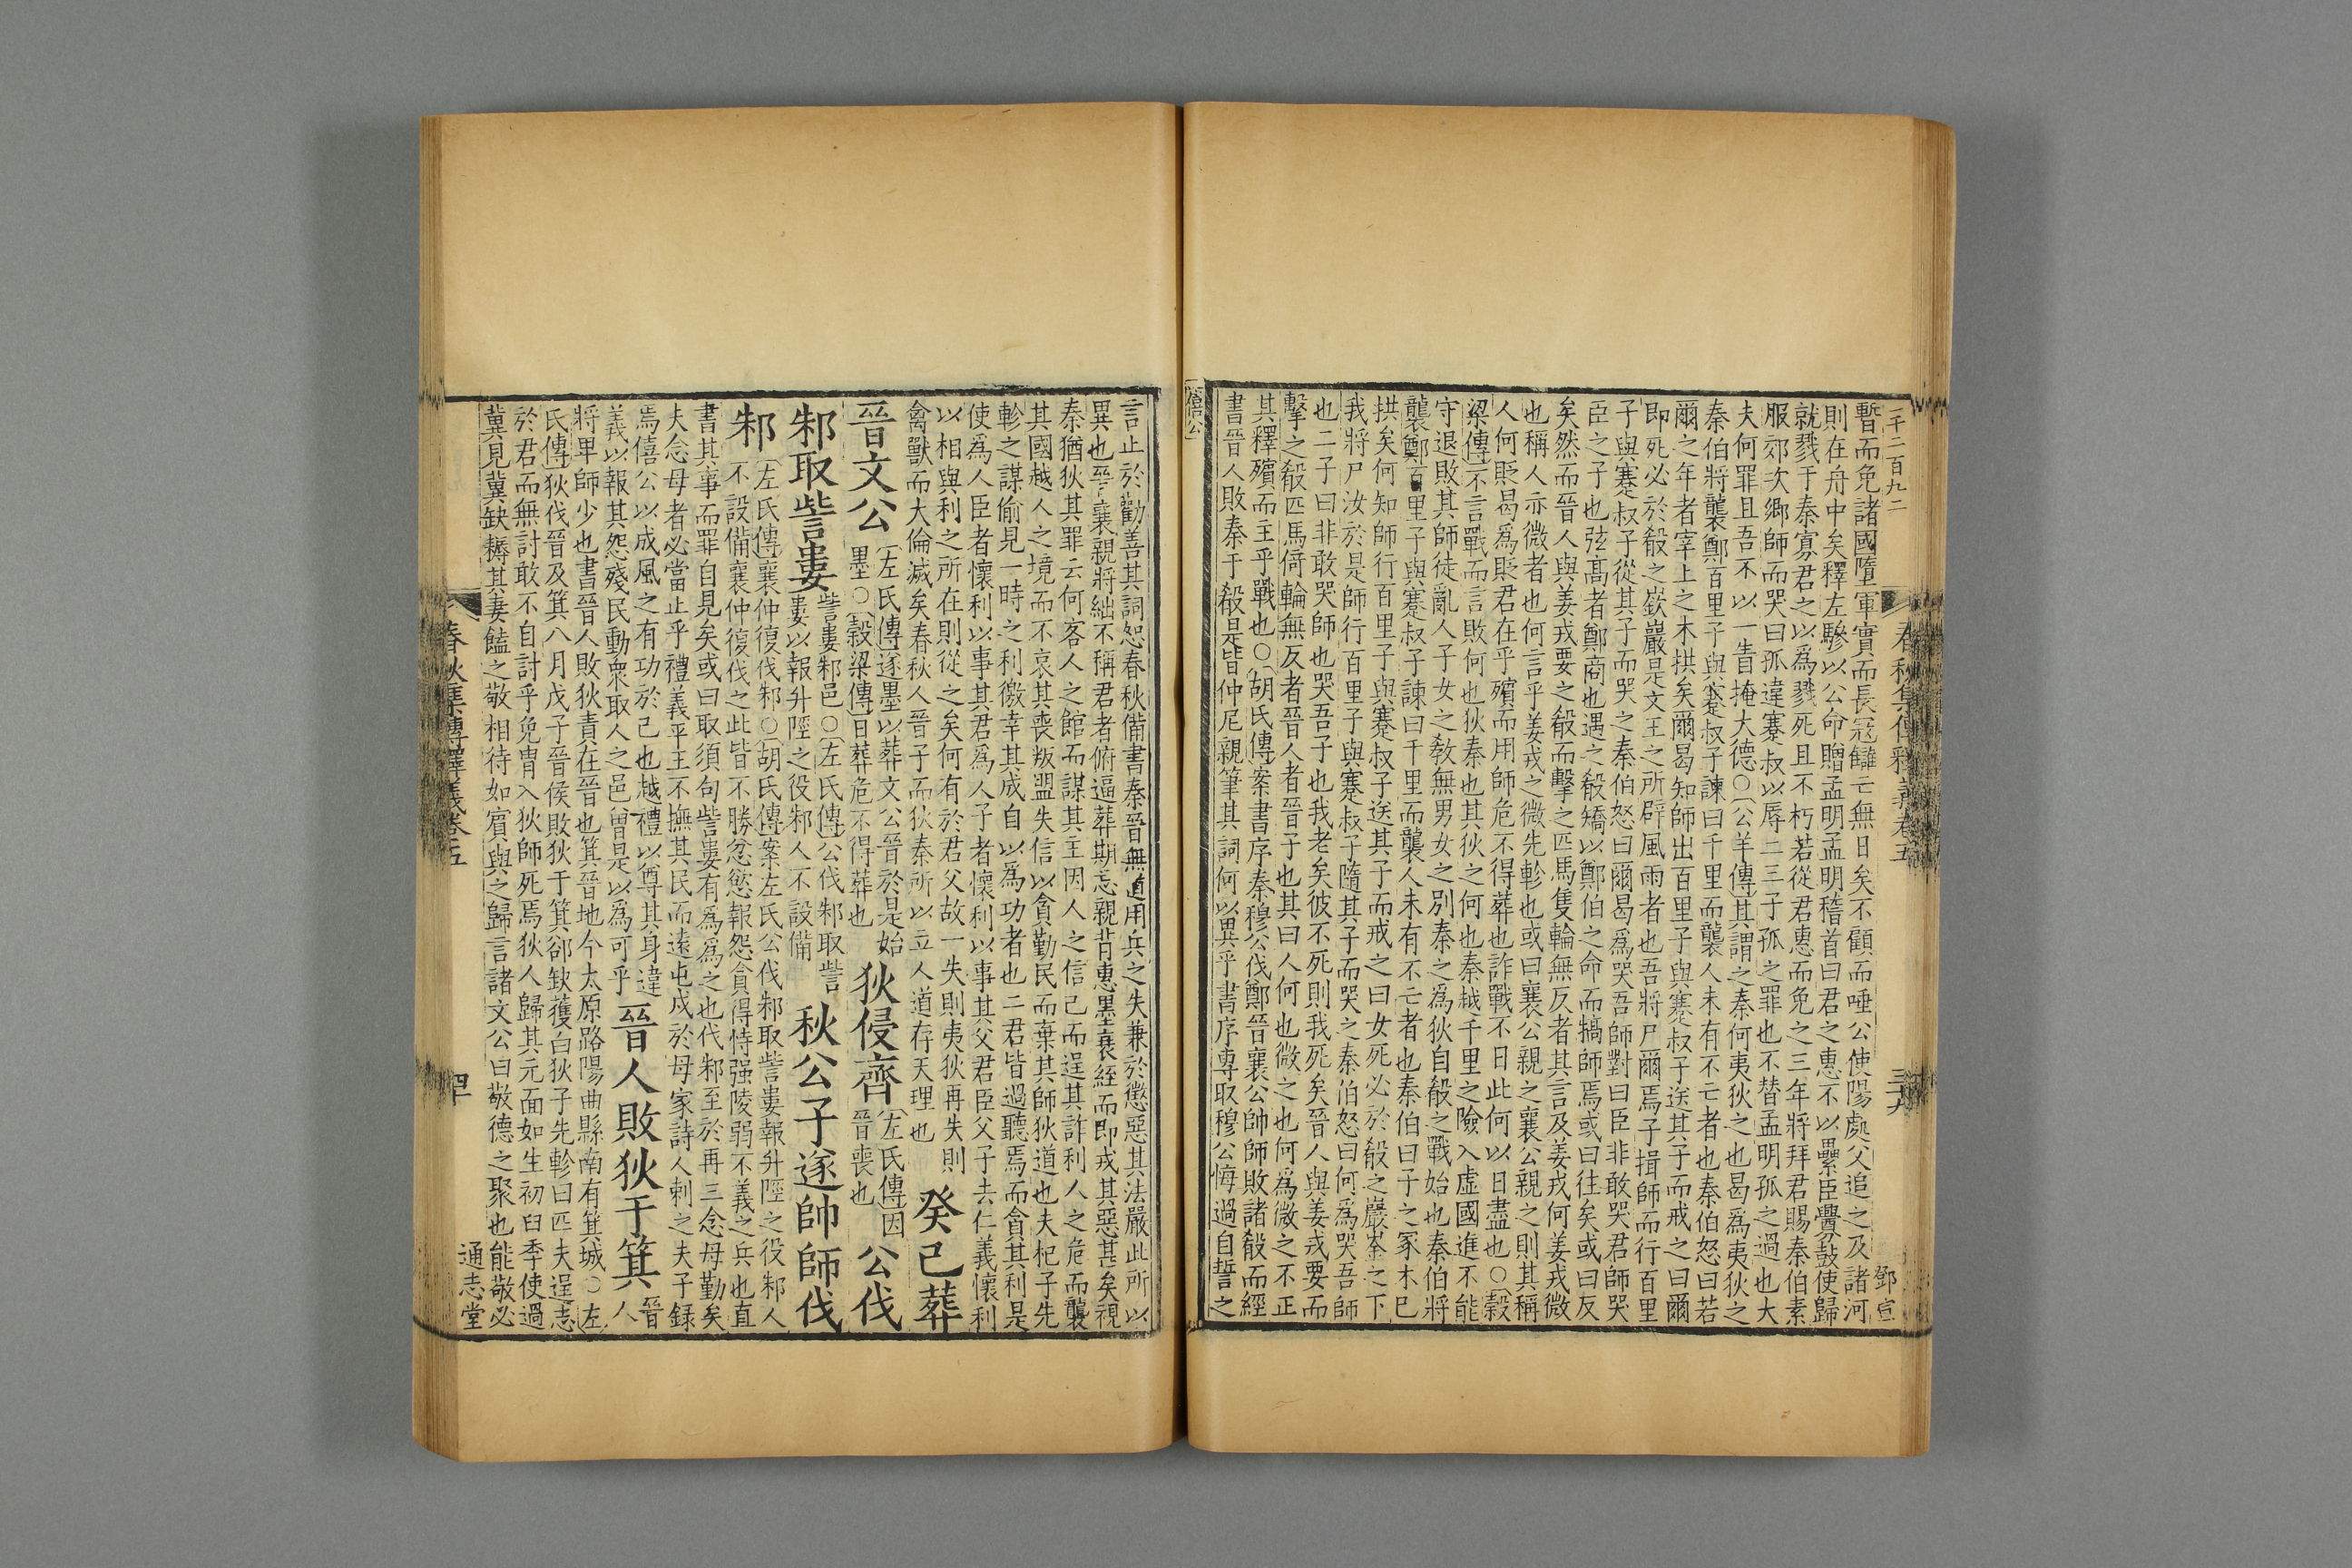 二千二百九二
春秋集傳釋義卷五
三十九
鄧宣
暫而免諸國墮軍實而長寇讎亡無日矣不顧而唾公使陽處父追之及諸河
則在舟中矣釋左驂以公命贈孟明孟明稽首曰君之惠不以纍臣釁鼓使歸
就戮于秦寡君之以爲戮死且不朽若從君惠而免之三年將拜君賜秦伯素
服郊次鄉師而哭曰孤違蹇叔以辱二三子孤之罪也不替孟明孤之過也大
夫何罪且吾不以一眚掩大德○公羊傳其謂之秦何夷狄之也曷爲夷狄之
秦伯將襲鄭百里子與蹇叔子諫曰千里而襲人未有不亡者也秦伯怒曰若
爾之年者宰上之木拱矣爾曷知師出百里子與蹇叔子送其子而戒之曰爾
即死必於殽之嶔巖是文王之所辟風雨者也吾將尸爾焉子揖師而行百里
子與蹇叔子從其子而哭之秦伯怒曰爾曷爲哭吾師對曰臣非敢哭君師哭
臣之子也弦高者鄭商也遇之殽矯以鄭伯之命而犒師焉或曰往矣或曰反
矣然而晉人與姜戎要之殽而擊之匹馬隻輪無反者其言及姜戎何姜戎微
也稱人亦微者也何言乎姜戎之微先軫也或曰襄公親之襄公親之則其稱
人何貶曷爲貶君在乎殯而用師危不得葬也詐戰不日此何以日盡也○穀
梁傳不言戰而言敗何也狄秦也其狄之何也秦越千里之險入虛國進不能
守退敗其師徒亂人子女之敎無男女之別秦之爲狄自殽之戰始也秦伯將
襲鄭百里子與蹇叔子諫曰千里而襲人未有不亡者也秦伯曰子之冢木已
拱矣何知師行百里子與蹇叔子送其子而戒之曰女死必於殽之巖崟之下
我將尸汝於是師行百里子與蹇叔子隨其子而哭之秦伯怒曰何爲哭吾師
也二子曰非敢哭師也哭吾子也我老矣彼不死則我死矣晉人與姜戎要而
擊之殽匹馬倚輪無反者晉人者晉子也其曰人何也微之也何爲微之不正
其釋殯而主乎戰也○胡氏傳案書序秦穆公伐鄭晉襄公帥師敗諸殽而經
書晉人敗秦于殽是皆仲尼親筆其詞何以異乎書序專取穆公悔過自誓之
言止於勸善其詞恕春秋備書秦晉無道用兵之失兼於懲惡其法嚴此所以
異也晉襄親將絀不稱君者俯逼葬期忘親背惠墨衰絰而即戎其惡甚矣視
秦猶狄其罪云何客人之館而謀其主因人之信己而逞其詐利人之危而襲
其國越人之境而不哀其喪叛盟失信以貪勤民而棄其師狄道也夫杞子先
軫之謀偷見一時之利徼幸其成自以爲功者也二君皆過聽焉而貪其利是
使爲人臣者懷利以事其君爲人子者懷利以事其父君臣父子去仁義懷利
以相與利之所在則從之矣何有於君父故一失則夷狄再失則
禽獸而大倫滅矣春秋人晉子而狄秦所以立人道存天理也
癸巳葬
晉文公
左氏傳遂墨以葬文公晉於是始
墨○穀梁傳日葬危不得葬也
狄侵齊
左氏傳因
晉喪也
公伐
邾取訾婁
訾婁邾邑○左氏傳公伐邾取訾
婁以報升陘之役邾人不設備
秋公子遂帥師伐
邾
左氏傳襄仲復伐邾○胡氏傳案左氏公伐邾取訾婁報升陘之役邾人
不設備襄仲復伐之此皆不勝忿慾報怨貪得恃强陵弱不義之兵也直
書其事而罪自見矣或曰取須句訾婁有爲爲之也代邾至於再三念母勤矣
夫念母者必當止乎禮義平王不撫其民而遠屯戍於母家詩人刺之夫子録
焉僖公以成風之有功於己也越禮以尊其身違
義以報其怨殘民動衆取人之邑曽是以爲可乎
晉人敗狄于箕
晉
人
將畀師少也書晉人敗狄責在晉也箕晉地今太原路陽曲縣南有箕城○左
氏傳狄伐晉及箕八月戊子晉侯敗狄于箕郤缺獲白狄子先軫曰匹夫逞志
於君而無討敢不自討乎免胄入狄師死焉狄人歸其元面如生初臼季使過
冀見冀缺耨其妻饁之敬相待如賓與之歸言諸文公曰敬德之聚也能敬必
春秋集傳釋義卷五
四十
通志堂